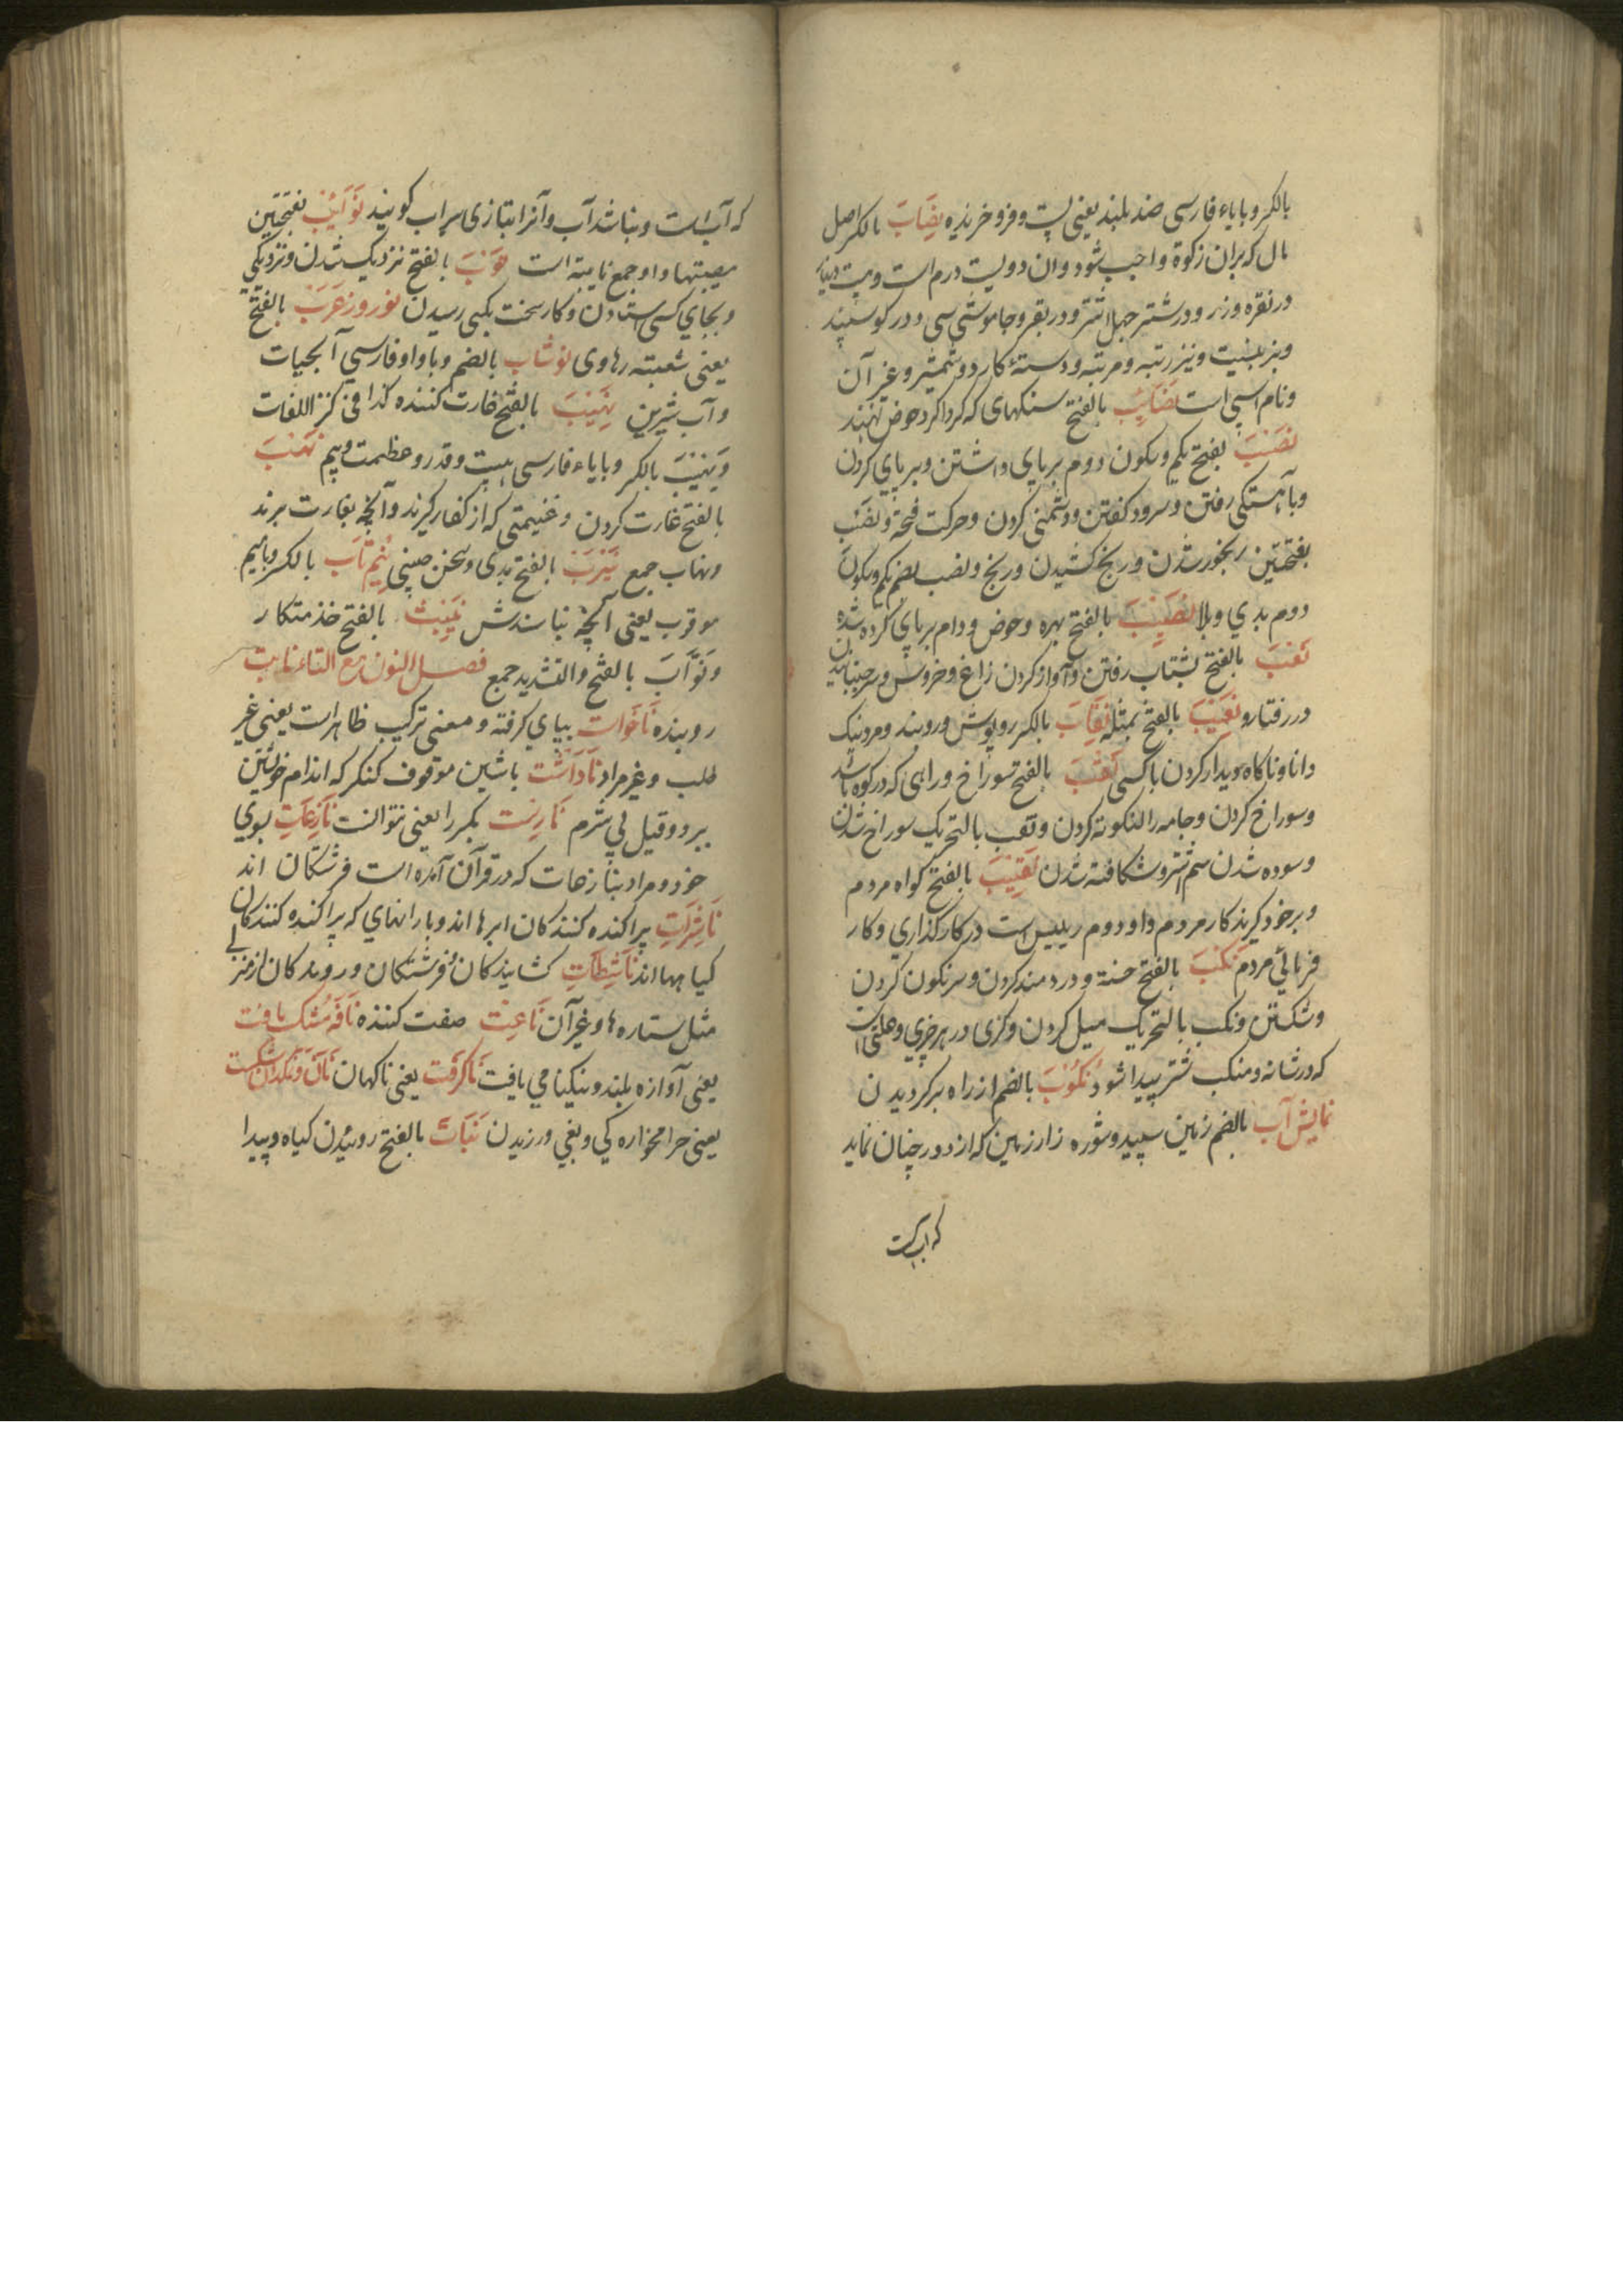 بالکسر و با یاء فارسی ضد بلند یعنی پست و فرو خزیده نِصَابَ بالکسر اصل
مال که بران زکوة واجب شود و ان دویست درم است و بیست دینار
در نقره و زر و در شتر چهل اشتر و در بقر و جاموش سی و در کوسپند
و بز بیست و نیز رتبه و مرتبه و دستهٔ کارد و شمشیر و غیر آن
و نام اسپی است نَصَایِبْ بالفتح سنکهای که کرداکرد حوض نهند
نَصْبَ بفتح یکم و سکون دوم بر پای داشتن و بر پای کردن
و بآهستکی رفتن و سرود کفتن و دشمنی کردن و حرکت فتحه و نَصَبْ
بفتحتین رنجور شدن و رنج کشیدن و رنج و نصب بضم یکم و سکون
دوم بدی و بلا نَصِیْبَ بالفتح بهره و حوض و دام بر پای کرده شده
نَعْبَ بالفتح بشتاب رفتن و آواز کردن زاغ و خروس و سرجنبانیدن
در رفتار و نَعِیْبَ بالفتح مثله نِقَابَ بالکسر روپوش و روبند و مرد نیک
دانا و ناکاه دیدار کردن با کسی نَقْبَ بالفتح سوراخ و راهی که در کوه باشد
و سوراخ کردن و جامه را لنکوته کردن و نقب بالتحریک سوراخ شدن
و سوده شدن سم اشتر و شکافته شدن نَقِیْبَ بالفتح کواه مردم
و برخود کیرند کار مردم و او دوم رییس است در کارکذاری و کار
فرمائی مردم نَکْبَ بالفتح خسته و دردمند کردن و سرنکون کردن
و شکستن و نکب بالتحریک میل کردن و کژی در هر چیزی و علتی است
که در شانه و منکب شتر پیدا شود نُکُوْبَ بالضم از راه برکردیدن
نمایش آب بالضم زمین سپید و شوره زار زمین که از دور چنان نماید
که اب است
که آب است و نباشد آب و آنرا بتازی سراب کویند نَوَایِبْ بفتحتین
مصیبتها و او جمع نایبه است نَوْبَ بالفتح نزدیک شدن و نزدیکی
و بجای کسی ستادن و کار سخت بکسی رسیدن نوروز عَرَبْ بالفتح
یعنی شعبته رهاوی نوشاب بالضم و با واو فارسی آبحیات
و آب شیرین نَهِیْبَ بالفتح غارت کننده کذا فی کنز اللغات
وَ نِهِیْبَ بالکسر و با یاء فارسی هیبت و قدر و عظمت و بیم نَهْبَ
بالفتح غارت کردن و غنیمتی که از کفار کیرند و آنچه بغارت برند
و نهاب جمع نَیْرَبْ بالفتح بدی و سخن چینی نِیم تَابَ بالکسر و با میم
موقوف یعنی آنچه نباشدش بالفتح خدمتکار
وَ نُوَّابَ بالفتح و التشدید جمع فصل النون مع التاء نابت
روینده نَاخَوات بپای کرفته و معنی ترکیب ظاهر است یعنی غیر
طلب و غیر مراد نَادَاشْت با شین موقوف کنکر که اندام خویشتن
ببرد و قیل بی شرم نَارِسْت بکسر را یعنی نتوانست نَازِعَاتِ بوی
خود و مراد بنازعات که در قرآن آمده است فرشتکان اند
نَاشِرَاتِ پراکنده کنندکان ابرها اند و بارانهای که پراکنده کنندکان
کیاهها اند نَاشِطَاتِ کشایندکان و فرشتکان و روندکان از منزلی
مثل ستاره ها و غیر آن نَاعِتْ صفت کننده نَافَه مُشک یافت
یعنی آوازه بلند و نیکنامی یافت نَاکِرفْت یعنی ناکهان نَان و نمکدان شکست
یعنی حرامخواره کی و بغی ورزیدن نَبَاتْ بالفتح روییدن کیاه و پیدا